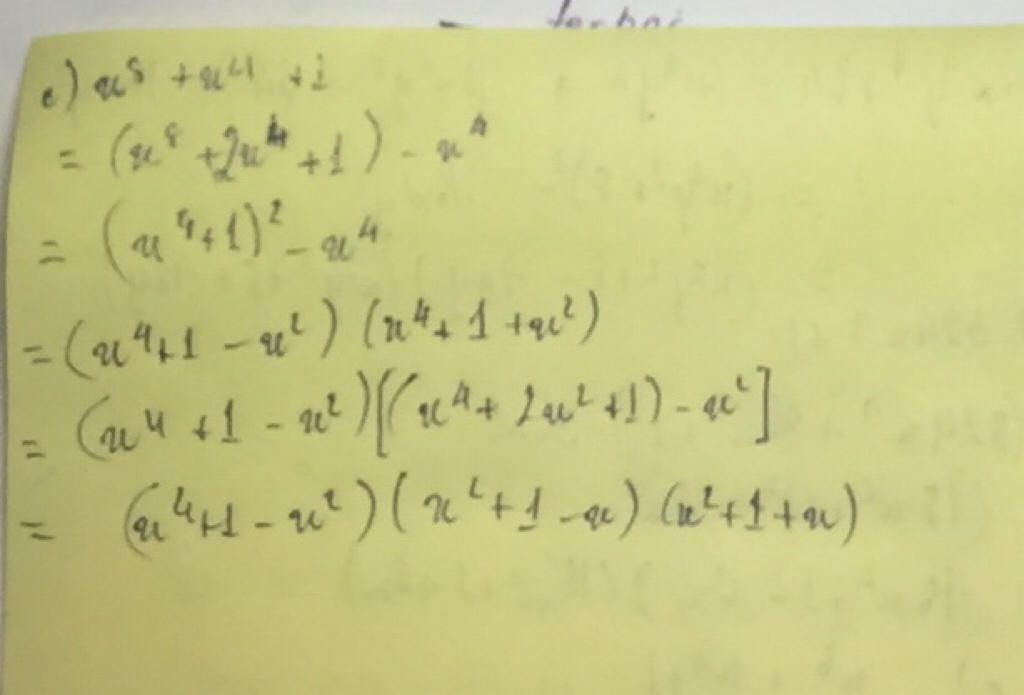 c) x⁸ + x⁴ + 1
= (x⁸ + 2x⁴ + 1) - x⁴
= (x⁴ + 1)² - x⁴
= (x⁴ + 1 - x²) (x⁴ + 1 + x²)
= (x⁴ + 1 - x²) [(x⁴ + 2x² + 1) - x²]
= (x⁴ + 1 - x²) (x² + 1 - x) (x² + 1 + x)